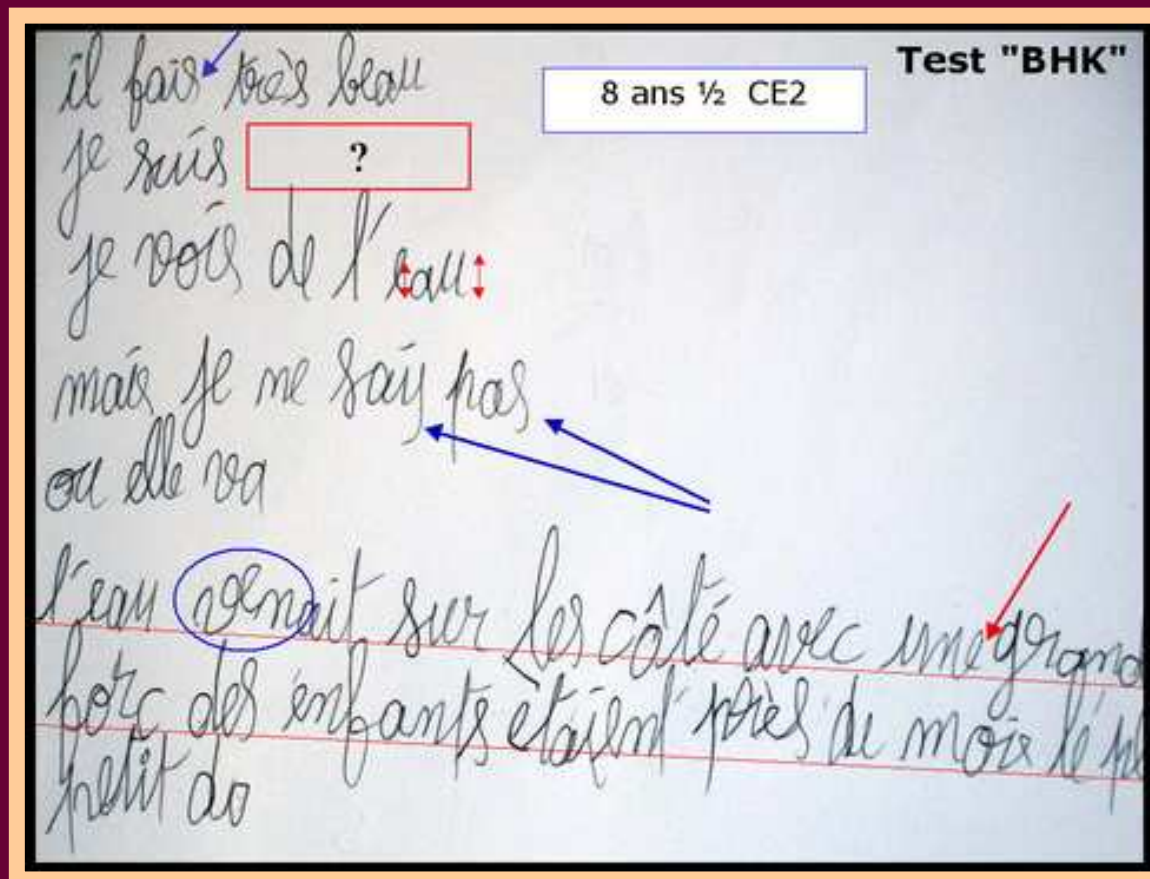 Test "BHK"
8 ans ½ CE2
il fais très beau
je suis ?
je vois de l'eau
mais je ne say pas
ou elle va
l'eau venait sur les côté avec une grand
forc des enfants étaient près de moi le pl
petit do